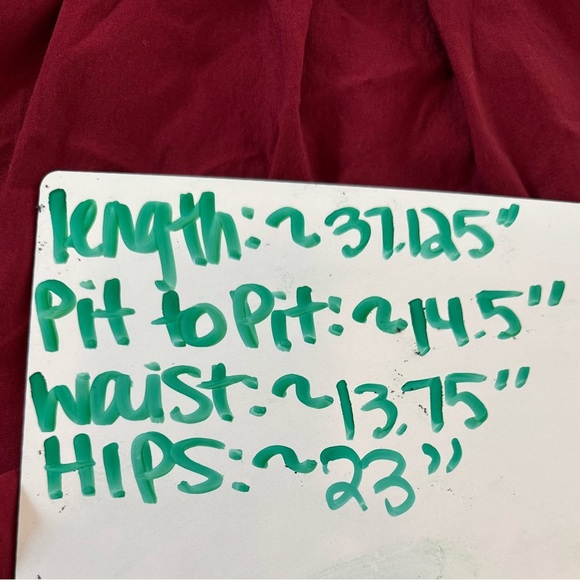 length: ~37.125"
Pit to Pit: ~14.5"
Waist: ~13.75"
HIPS: ~23"